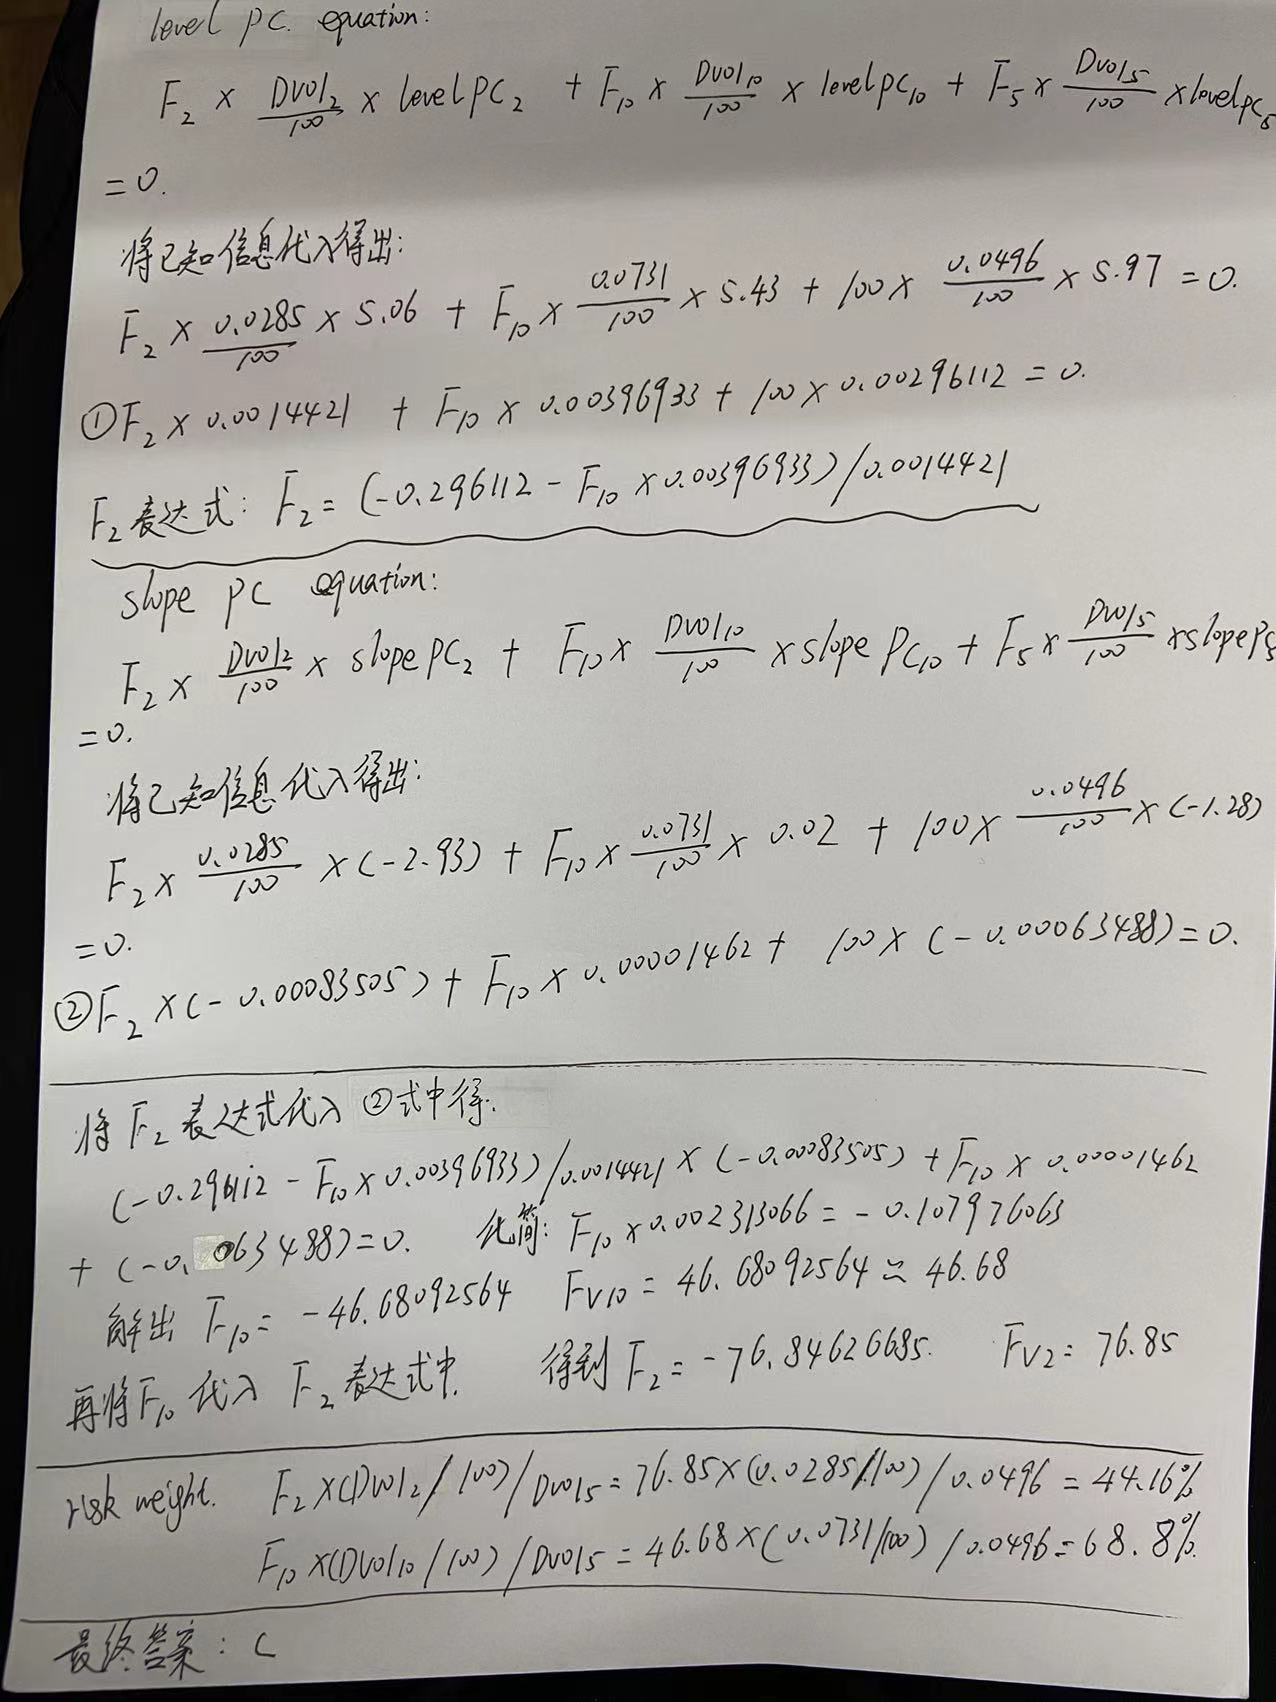 level PC. equation:
F₂ × DV01₂/100 × level PC₂ + F₁₀ × DV01₁₀/100 × level PC₁₀ + F₅ × DV01₅/100 × level PC₅
= 0.
将已知信息代入得出:
F₂ × 0.0285/100 × 5.06 + F₁₀ × 0.0731/100 × 5.43 + 100 × 0.0496/100 × 5.97 = 0.
① F₂ × 0.0014421 + F₁₀ × 0.00396933 + 100 × 0.00296112 = 0.
F₂表达式: F₂ = (-0.296112 - F₁₀ × 0.00396933)/0.0014421
slope PC equation:
F₂ × DV01₂/100 × slope PC₂ + F₁₀ × DV01₁₀/100 × slope PC₁₀ + F₅ × DV01₅/100 × slope P₅
= 0.
将已知信息代入得出:
F₂ × 0.0285/100 × (-2.93) + F₁₀ × 0.0731/100 × 0.02 + 100 × 0.0496/100 × (-1.28)
= 0.
② F₂ × (-0.00083505) + F₁₀ × 0.00001462 + 100 × (-0.00063488) = 0.
将F₂表达式代入②式中得.
(-0.296112 - F₁₀ × 0.00396933)/0.0014421 × (-0.00083505) + F₁₀ × 0.00001462
+ (-0.063488) = 0. 化简: F₁₀ × 0.002313066 = -0.107976063
解出 F₁₀ = -46.68092564 FV10 = 46.68092564 ≈ 46.68
再将F₁₀代入F₂表达式中. 得到F₂ = -76.84626685. FV2 = 76.85
risk weight. F₂ × (DV01₂/100)/DV01₅ = 76.85 × (0.0285/100)/0.0496 = 44.16%
F₁₀ × (DV01₁₀/100)/DV01₅ = 46.68 × (0.0731/100)/0.0496 = 68.8%.
最终答案: C